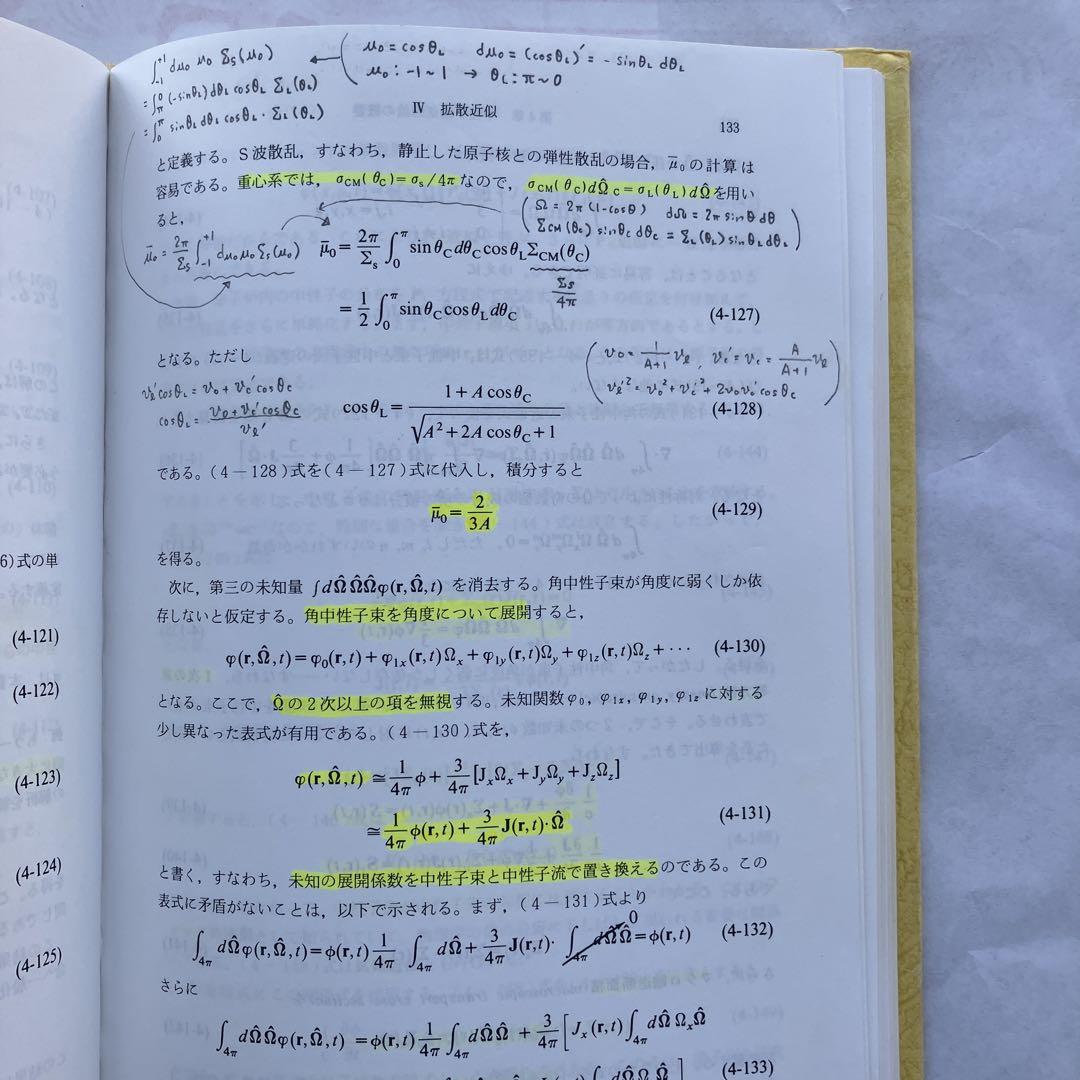 ∫₋₁⁺¹ dμ₀ μ₀ Σs(μ₀) ← ( μ₀ = cosθL dμ₀ = (cosθL)' = - sinθL dθL
μ₀ : -1 ~ 1 → θL : π ~ 0
= ∫π⁰ (-sinθL) dθL cosθL ΣL(θL)
= ∫₀π sinθL dθL cosθL · ΣL(θL)
IV 拡散近似
133
と定義する。S波散乱，すなわち，静止した原子核との弾性散乱の場合，μ̄₀の計算は
容易である。重心系では，σCM(θC)=σs/4πなので，σCM(θC)dΩ̂C=σL(θL)dΩ̂を用い
ると，
( Ω = 2π(1-cosθ) dΩ = 2π sinθ dθ
ΣCM(θC) sinθC dθC = ΣL(θL) sinθL dθL )
μ̄₀ = 2π/Σs ∫₋₁⁺¹ dμ₀ μ₀ Σs(μ₀)
μ̄₀ = 2π/Σs ∫₀π sinθC dθC cosθL ΣCM(θC)
Σs/4π
= 1/2 ∫₀π sinθC cosθL dθC (4-127)
となる。ただし
( v₀ = 1/(A+1) vℓ , vc' = vc = A/(A+1) vℓ
vℓ'² = v₀² + vc'² + 2v₀vc' cosθC )
vℓ' cosθL = v₀ + vc' cosθC
cosθL = (v₀ + vc' cosθC)/vℓ'
cosθL = (1 + A cosθC)/√(A² + 2A cosθC + 1) (4-128)
である。(4－128)式を(4－127)式に代入し，積分すると
μ̄₀ = 2/3A (4-129)
を得る。
次に，第三の未知量 ∫dΩ̂Ω̂Ω̂φ(r,Ω̂,t) を消去する。角中性子束が角度に弱くしか依
存しないと仮定する。角中性子束を角度について展開すると，
φ(r,Ω̂,t)=φ₀(r,t)+φ₁ₓ(r,t)Ωₓ+φ₁y(r,t)Ωy+φ₁z(r,t)Ωz+⋯ (4-130)
となる。ここで，Ω̂の2次以上の項を無視する。未知関数φ₀，φ₁ₓ，φ₁y，φ₁zに対する
少し異なった表式が有用である。(4－130)式を，
φ(r,Ω̂,t) ≅ 1/4π ϕ + 3/4π [JₓΩₓ+JyΩy+JzΩz]
≅ 1/4π ϕ(r,t) + 3/4π J(r,t)·Ω̂ (4-131)
と書く，すなわち，未知の展開係数を中性子束と中性子流で置き換えるのである。この
表式に矛盾がないことは，以下で示される。まず，(4－131)式より
0
∫4π dΩ̂φ(r,Ω̂,t)=ϕ(r,t) 1/4π ∫4π dΩ̂ + 3/4π J(r,t)· ∫4π dΩ̂Ω̂=ϕ(r,t) (4-132)
さらに
∫4π dΩ̂Ω̂φ(r,Ω̂,t) =ϕ(r,t) 1/4π ∫4π dΩ̂Ω̂ + 3/4π [Jₓ(r,t)∫4π dΩ̂ΩₓΩ̂
(4-133)
6)式の単
(4-121)
(4-122)
(4-123)
(4-124)
(4-125)